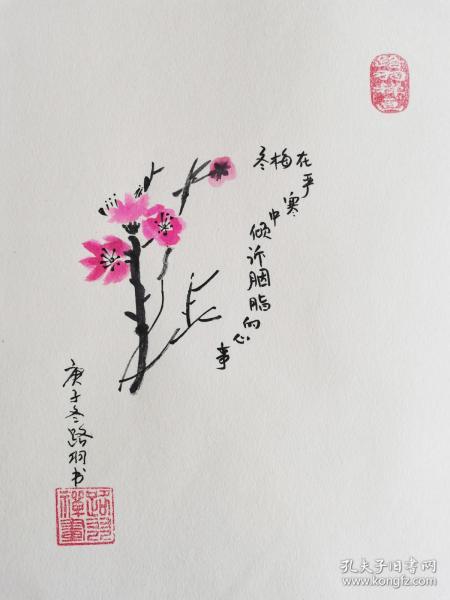 冬梅在严寒中倾诉胭脂的心事
庚子冬路羽书
路羽禪畫
孔夫子旧书网
www.kongfz.com